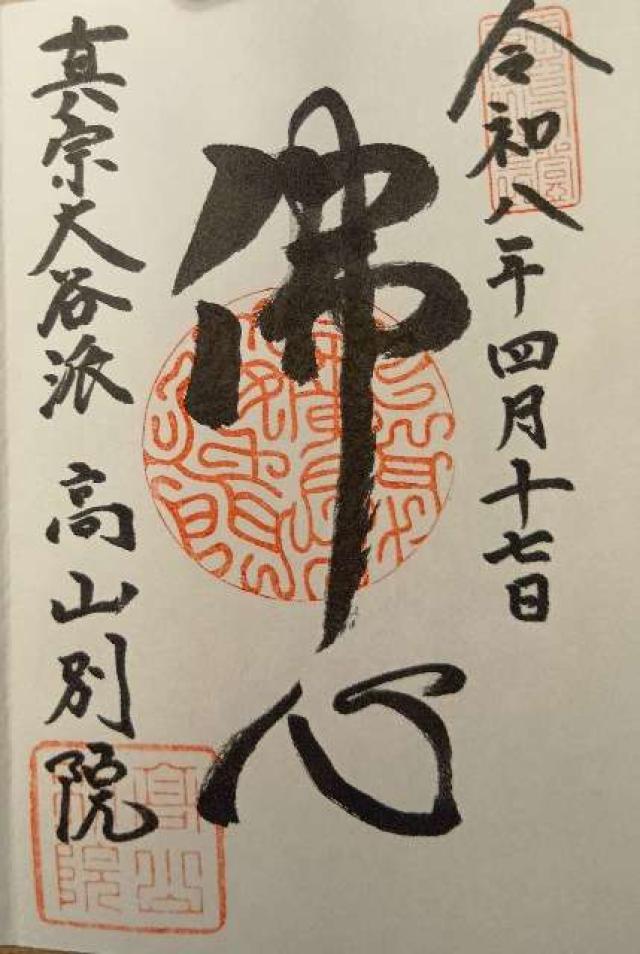 令和八年四月十七日
佛心
真宗大谷派 高山別院
高山別院